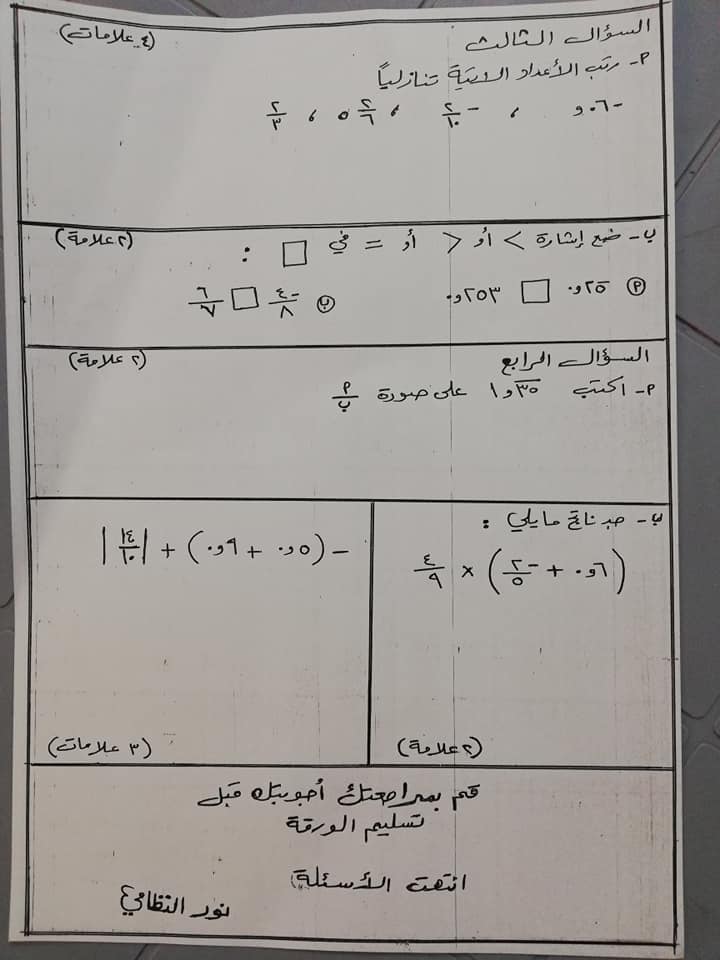 السؤال الثالث (٤ علامات)
٢- رتب الأعداد الآتية تنازلياً
-٦٠و ، -٢/١٠ ، ٥ ٢/٦ ، ٢/٣
ب- ضع إشارة > أو < أو = في □ : (٢ علامة)
(٢) ٢٥و٠ □ ٢٥٣و٠ (ب) -٤/٨ □ ٦/٧
السؤال الرابع (٢ علامة)
٢- اكتب ٣٥و١ على صورة ٢/ب
ب- جد ناتج مايلي :
(٦و٠ + -٢/٥) × ٤/٩
(٢ علامة)
-(٥و٠ + ٩و٠) + |١٤/١٠|
(٣ علامات)
قم بمراجعتك أجوبتك قبل
تسليم الورقة
انتهت الأسئلة
نور النظامي